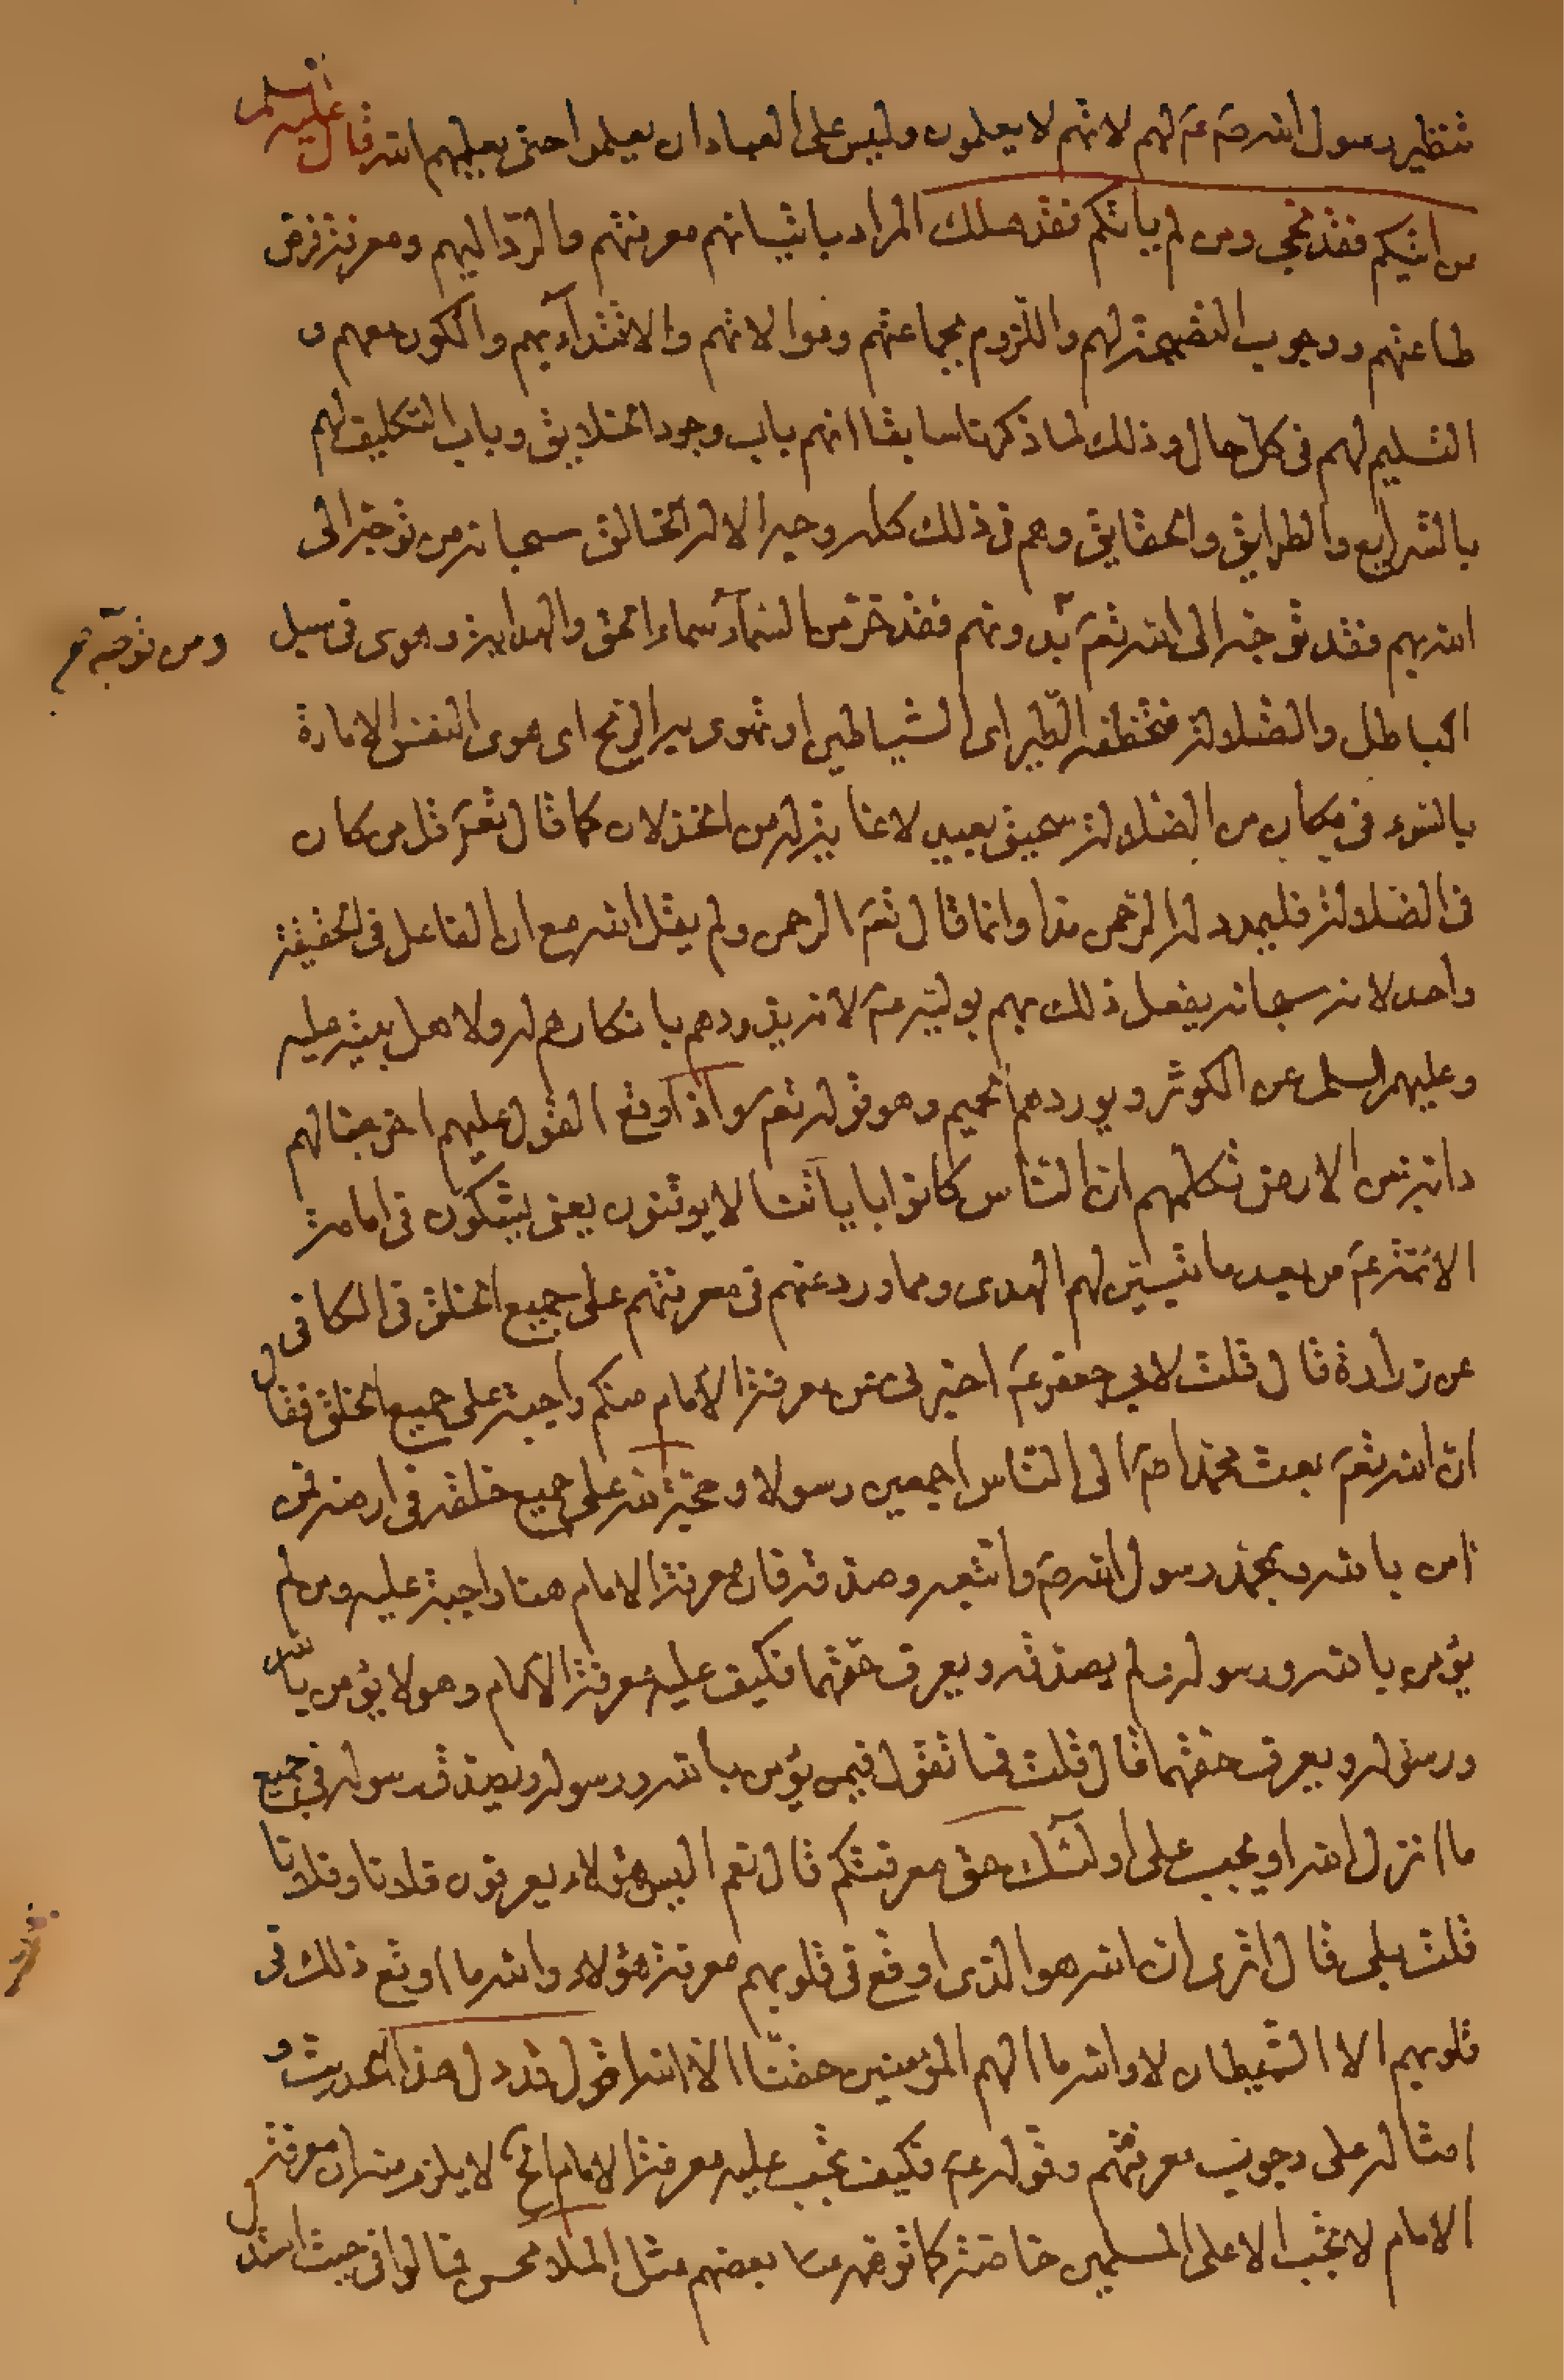 تنظير رسول الله صَ عَ لهم لانهم لا يعلمون وليس على العباد ان يعلموا حتى يعلمهم الله قال عليه السلم
من اتيكم فقد نجى ومن لم ياتكم فقد هلك المراد باتيانهم معرفتهم والردّ اليهم ومعرفة فرض
طاعتهم ووجوب النصيحة لهم واللزوم بجماعتهم وموالاتهم والاقتدآء بهم والكون معهم و
التسليم لهم فى كلّ حال وذلك لما ذكرنا سابقا انهم باب وجود الخلايق وباب التكليف لهم
بالشرايع والطرايق والحقايق وهم فى ذلك كله وجه الاله الخالق سبحانه من توجّه الى
الله بهم فقد توجّه الى الله تعَ بدونهم فقد خرّ من السّمآء سماء الحق والهداية وهوى فى سبيل
ومن توجّه
الباطل والضلالة فتخطفه الطّير اى الشياطين او تهوى به الريح اى هوى النفس الامارة
بالسّوء فى مكان من الضلالة سحيق بعيد لا غاية له من الخذلان كما قال تعَ قل من كان
فى الضلالة فليمدد له الرّحمن مدا وانما قال تعَ الرحمن ولم يقل الله مع ان الفاعل فى الحقيقة
واحد لانه سبحانه يفعل ذلك بهم بوليّه عَ لانه يذودهم بانكارهم له ولاهل بيته عليه
وعليهم السلم عن الكوثر ويوردهم الحميم وهو قوله تعَ واذا وقع القول عليهم اخرجنا لهم
دابة من الارض تكلمهم ان النّاس كانوا باياتنا لا يوقنون يعنى يشكّون فى امامة
الائمّة عَ من بعد ما تبيّن لهم الهدى ومما ورد عنهم فى معرفتهم على جميع الخلق فى الكافى
عن زرارة قال قلت لابى جعفر عَ اخبرنى عن معرفة الامام منكم واجبة على جميع الخلق فقال
ان الله تعَ بعث محمّدا صَ الى النّاس اجمعين رسولا وحجّة لله على جميع خلقه فى ارضه فمن
امن بالله وبمحمّد رسول الله صَ واتّبعه وصدّقه فان معرفة الامام منا واجبة عليه ومن لم
يؤمن بالله ورسوله ولم يصدّقه ويعرف حقّهما فكيف عليه معرفة الامام وهو لا يؤمن بالله
ورسوله ويعرف حقّهما قال قلت فما تقول فيمن يؤمن بالله ورسوله ويصدّق رسوله فى جميع
ما انزل الله او يجب على اولئك حق معرفتكم قال نعم اليس هؤلاء يعرفون فلانا وفلانا
قلت بلى قال اترى ان الله هو الذى اوقع فى قلوبهم معرفة هؤلاء والله ما اوقع ذلك فى
قلوبهم الا الشيطان لا والله ما الهم المؤمنين حقّنا الا الله اقول قد دل هذا الحديث و
امثاله على وجوب معرفتهم وقوله عَ فكيف تجب عليه معرفة الامام الخ لا يلزم منه ان معرفة
الامام لا تجب الا على المسلمين خاصّة كما توهمه بعضهم مثل الملا محسن فى الوافى حيث استدل